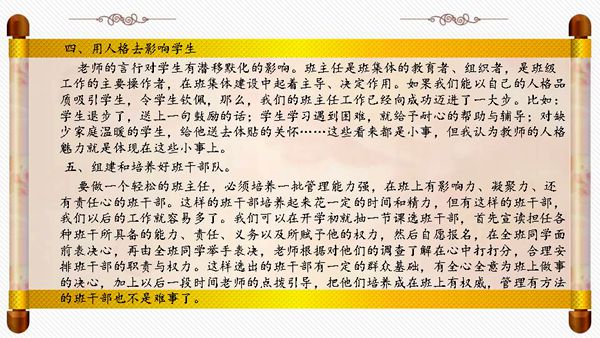 四、用人格去影响学生
老师的言行对学生有潜移默化的影响。班主任是班集体的教育者、组织者，是班级
工作的主要操作者，在班集体建设中起着主导、决定作用。如果我们能以自己的人格品
质吸引学生，令学生钦佩，那么，我们的班主任工作已经向成功迈进了一大步。比如：
学生退步了，送上一句鼓励的话；学生学习遇到困难，就给予耐心的帮助与辅导；对缺
少家庭温暖的学生，给他送去体贴的关怀……这些看来都是小事，但我认为教师的人格
魅力就是体现在这些小事上。
五、组建和培养好班干部队。
要做一个轻松的班主任，必须培养一批管理能力强，在班上有影响力、凝聚力、还
有责任心的班干部。这样的班干部培养起来花一定的时间和精力，但有这样的班干部，
我们以后的工作就容易多了。我们可以在开学初就抽一节课选班干部，首先宣读担任各
种班干所具备的能力、责任、义务以及所赋予他的权力，然后自愿报名，在全班同学面
前表决心，再由全班同学举手表决，老师根据对他们的调查了解在心中打打分，合理安
排班干部的职责与权力。这样选出的班干部有一定的群众基础，有全心全意为班上做事
的决心，加上以后一段时间老师的点拨引导，把他们培养成在班上有权威，管理有方法
的班干部也不是难事了。